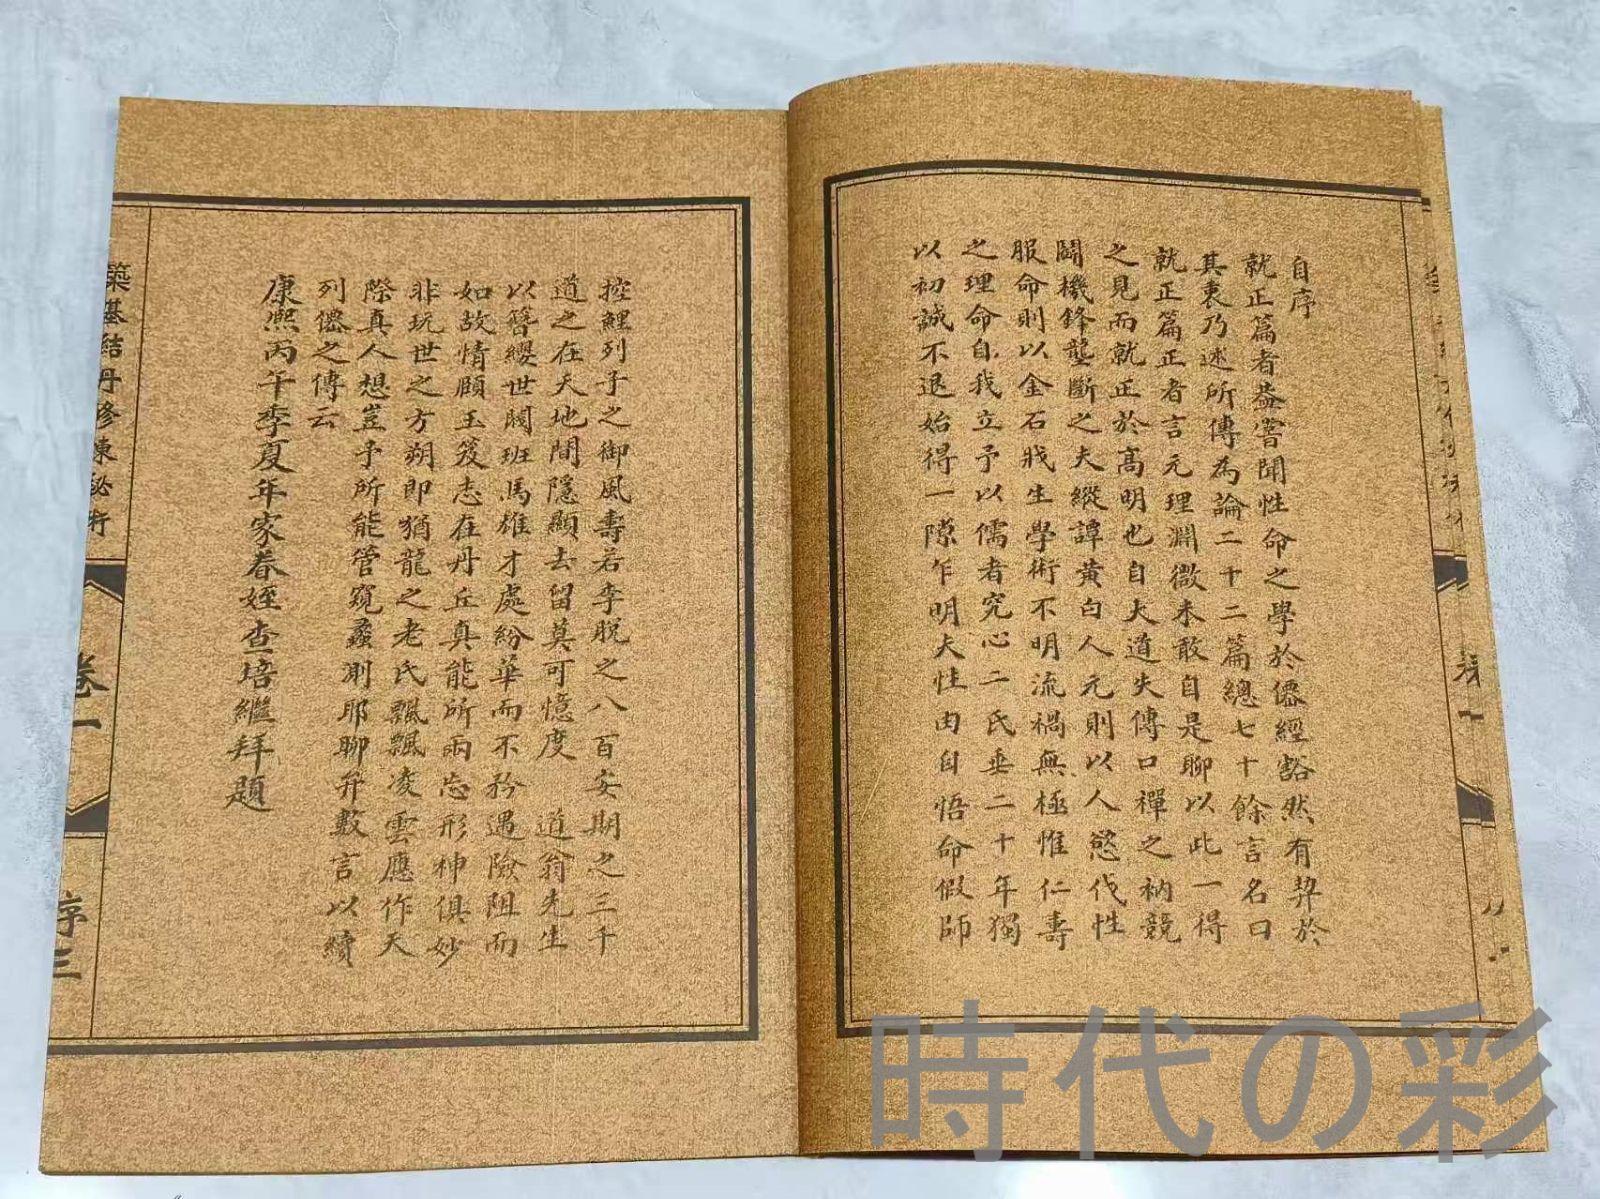 自序
就正篇者葢嘗聞性命之學於僊經豁然有契於
其衷乃述所傳為論二十二篇總七十餘言名曰
就正篇正者言元理淵微未敢自是聊以此一得
之見而就正於高明也自大道失傳口禪之衲競
鬪機鋒壟斷之夫縱譚黃白人元則以人慾伐性
服命則以金石戕生學術不明流禍無極惟仁壽
之理命自我立予以儒者究心二氏垂二十年獨
以初誠不退始得一隙乍明夫性由自悟命假師
控鯉列子之御風壽若李脫之八百安期之三千
道之在天地間隱顯去留莫可憶度 道翁先生
以簪纓世閥班馬雄才處紛華而不矜遇險阻而
如故情顧玉笈志在丹丘真能所兩忘形神俱妙
非玩世之方朔即猶龍之老氏飄飄凌雲應作天
際真人想豈予所能管窺蠡測耶聊弁數言以續
列僊之傳云
康熙丙午季夏年家眷姪查培繼拜題
築基結丹修煉秘術
卷一
序三
時代の彩